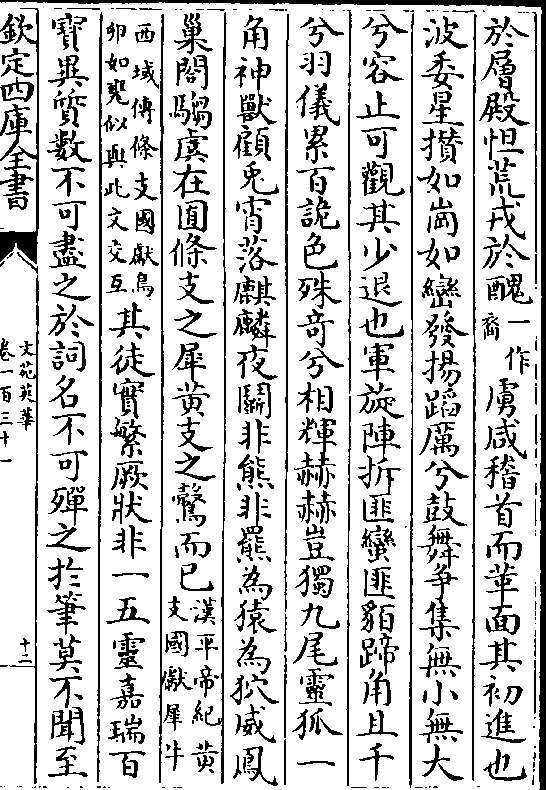 於層殿怛荒戎於醜一作裔虜咸稽首而革面其初進也
波委星攅如崗如巒發揚蹈厲兮鼓舞争集無小無大
兮容止可觀其少退也軍旋陣拆匪蠻匪貊蹄角且千
兮羽儀累百詭色殊奇兮相輝赫赫豈獨九尾靈狐一
角神獸顧兎宵落麒麟夜鬭非熊非羆為猿為狖威鳳
巢閣騶虞在囿條支之犀黄支之鷔而已漢平帝紀黄支國獻犀牛
西域傳條支國獻鳥卵如甕似與此文交互其徒實繁厥狀非一五靈嘉瑞百
寶異質數不可盡之於詞名不可殫之於筆莫不聞至
欽定四庫全書
文苑英華
卷一百三十一
十二